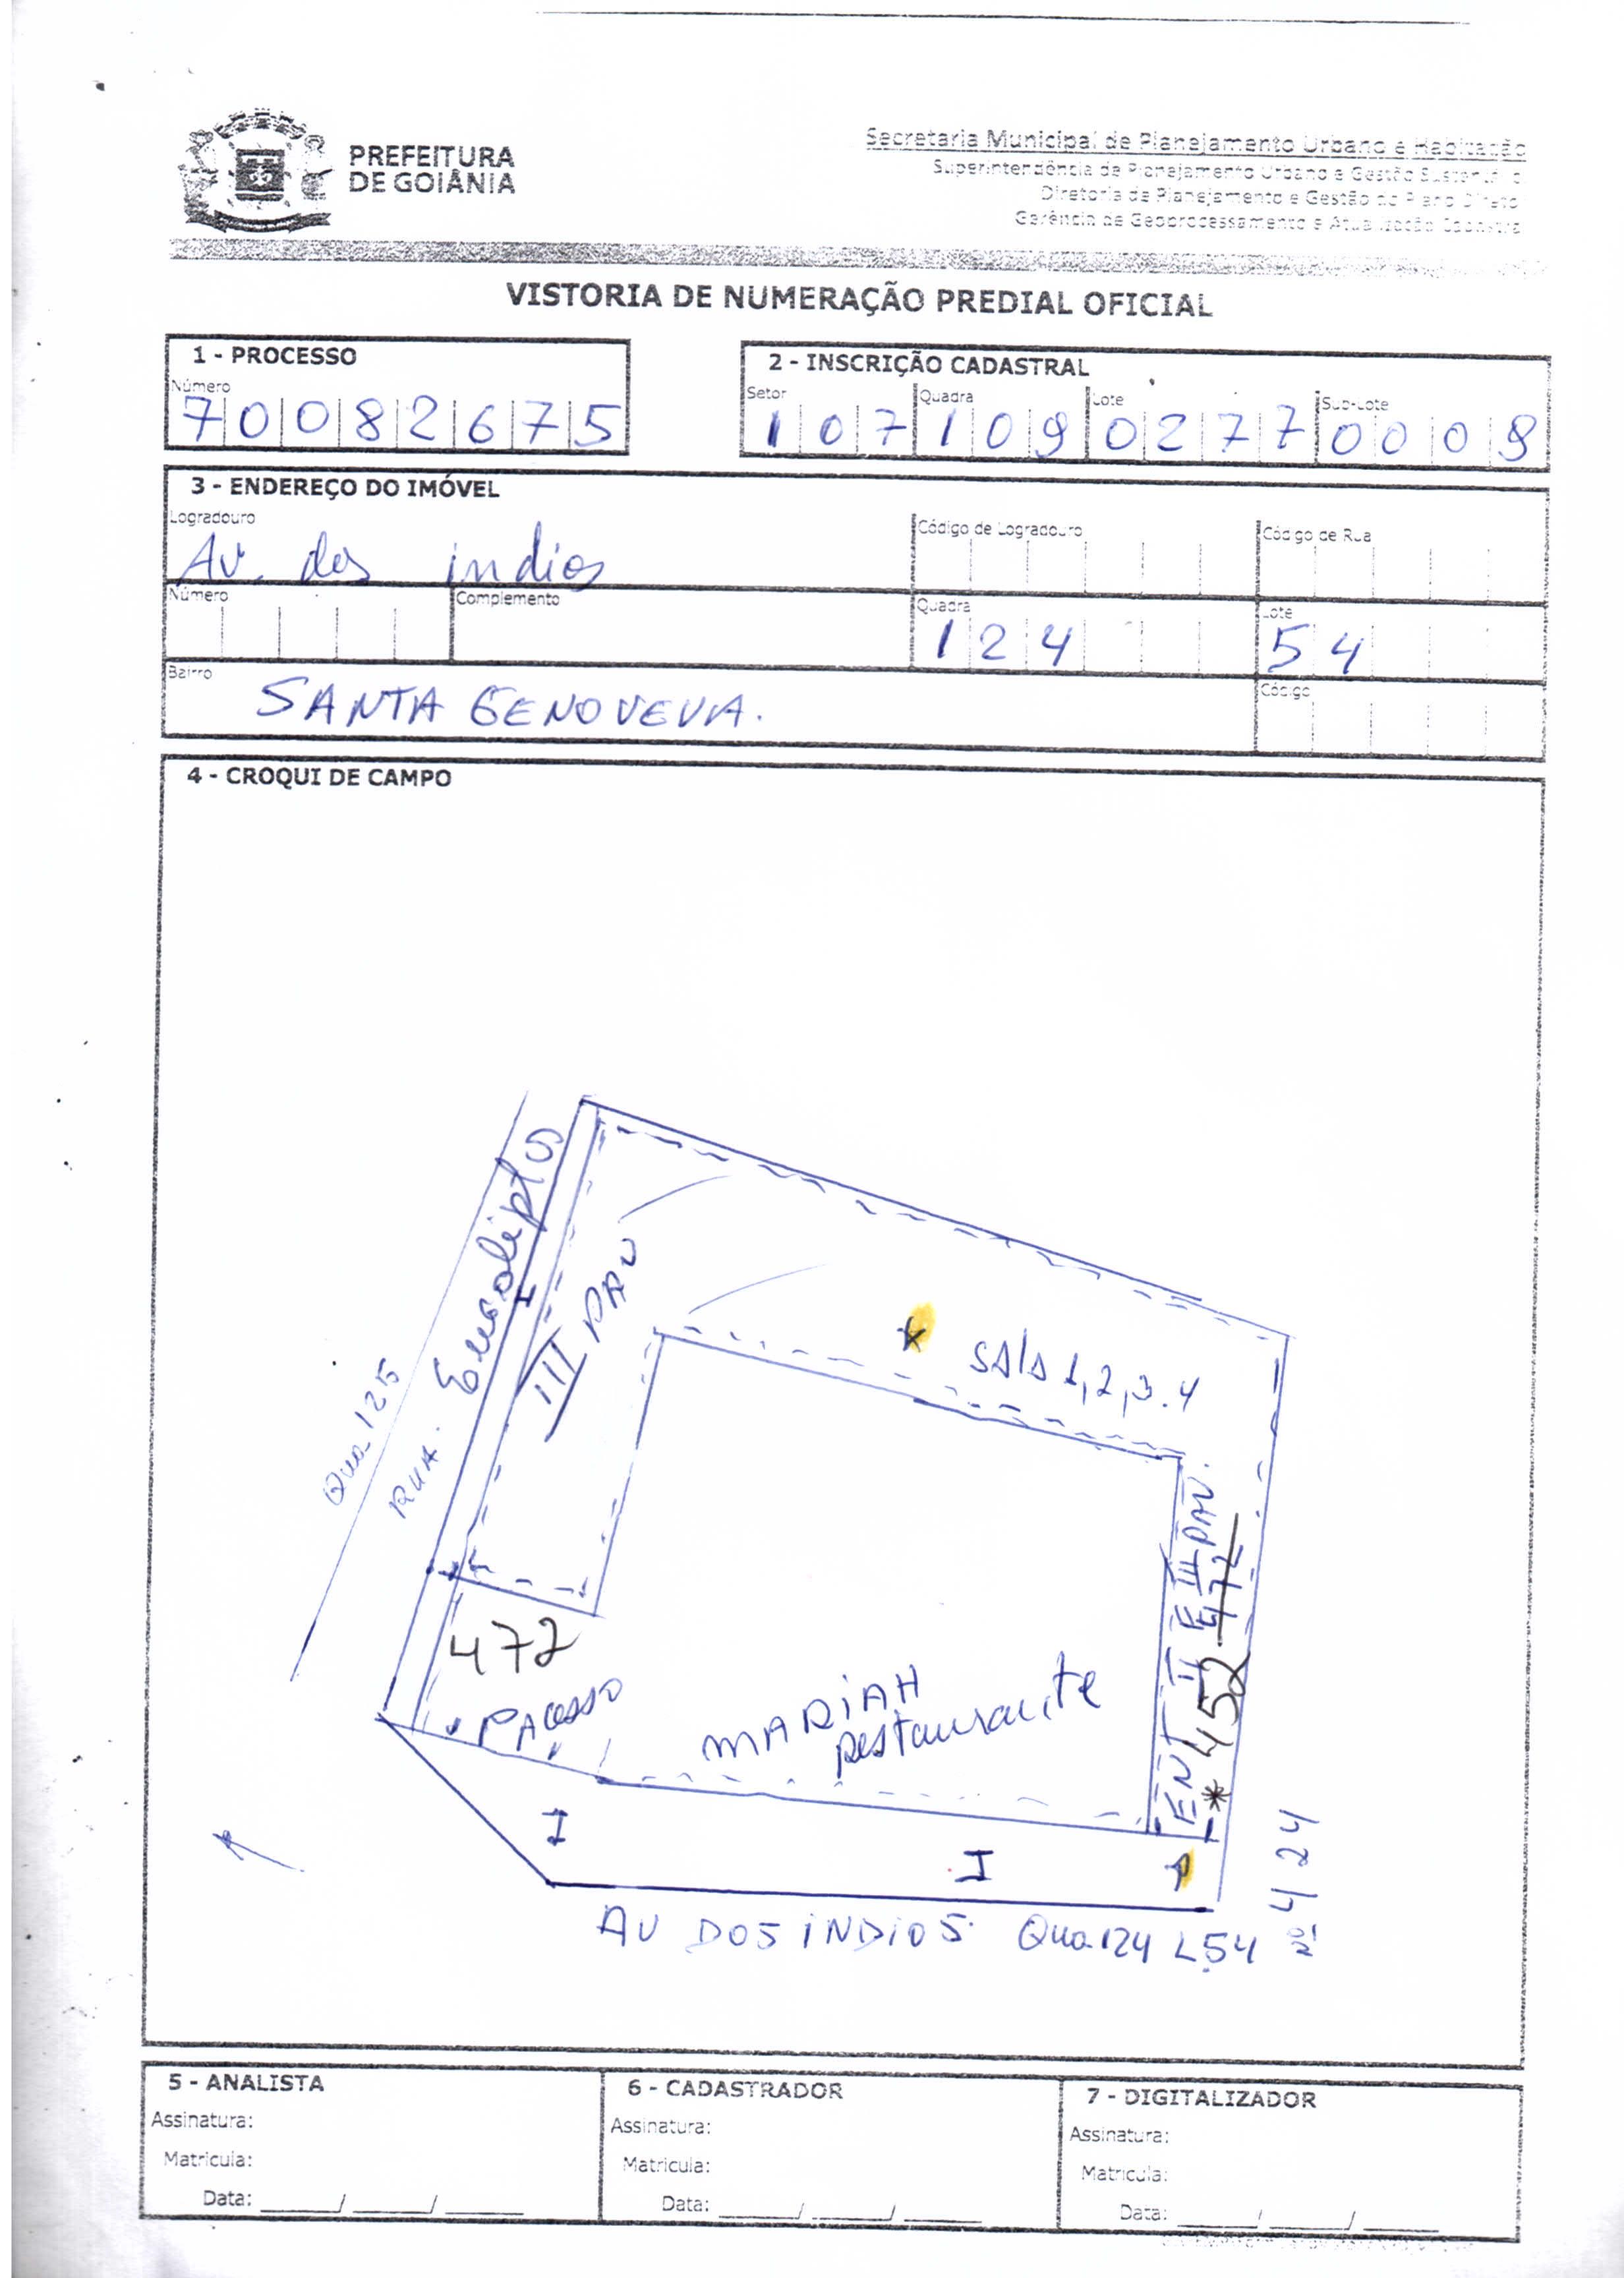 PREFEITURA
DE GOIÂNIA
Secretaria Municipal de Planejamento Urbano e Habitação
Superintendência de Planejamento Urbano e Gestão
Diretoria de Planejamento e Gestão do Plano
Gerência de Geoprocessamento e Atualização
VISTORIA DE NUMERAÇÃO PREDIAL OFICIAL
1 - PROCESSO
Número
70082675
2 - INSCRIÇÃO CADASTRAL
Setor Quadra Lote Sub-Lote
107 109 0277 0008
3 - ENDEREÇO DO IMÓVEL
Logradouro
Av. dos indios
Código de Logradouro
Código de Rua
Número
Complemento
Quadra
124
Lote
54
Bairro
SANTA GENOVEVA.
Código
4 - CROQUI DE CAMPO
Qua 125
RUA.
III PAV
* SALA 1,2,3.4
ENT II E III PAV.
* 452 472
472
P ACESSO
MARIAH
Restaurante
I
I
I
AV DOS INDIOS. Qua 124 L54
nº 4124
5 - ANALISTA
Assinatura:
Matricula:
Data: ____/____/____
6 - CADASTRADOR
Assinatura:
Matricula:
Data: ____/____/____
7 - DIGITALIZADOR
Assinatura:
Matricula:
Data: ____/____/____